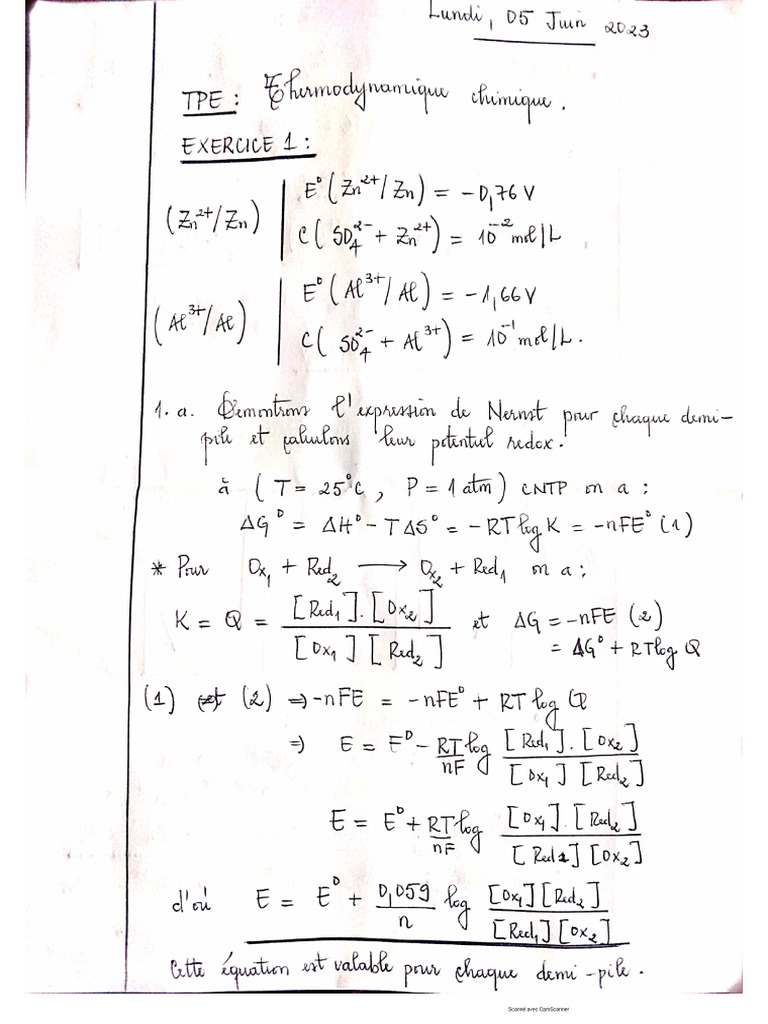 Lundi, 05 Juin 2023
TPE : Thermodynamique chimique.
EXERCICE 1 :
(Zn²⁺/Zn) | E°(Zn²⁺/Zn) = -0,76 V
C(SO₄²⁻ + Zn²⁺) = 10⁻² mol/L
(Al³⁺/Al) | E°(Al³⁺/Al) = -1,66 V
C(SO₄²⁻ + Al³⁺) = 10⁻¹ mol/L.
1. a. Demontrons l'expression de Nernst pour chaque demi-
pile et calculons leur potentiel redox.
à (T = 25°C, P = 1 atm) CNTP on a :
ΔG° = ΔH° - TΔS° = -RT log K = -nFE° (1)
* Pour Ox₁ + Red₂ ⟶ Ox₂ + Red₁ on a :
K = Q = [Red₁].[Ox₂] / [Ox₁][Red₂] et ΔG = -nFE (2)
= ΔG° + RT log Q
(1) et (2) ⇒ -nFE = -nFE° + RT log Q
⇒ E = E° - RT/nF log [Red₁].[Ox₂] / [Ox₁][Red₂]
E = E° + RT/nF log [Ox₁].[Red₂] / [Red₁][Ox₂]
d'où E = E° + 0,059/n log [Ox₁][Red₂] / [Red₁][Ox₂]
Cette équation est valable pour chaque demi-pile.
Scanné avec CamScanner